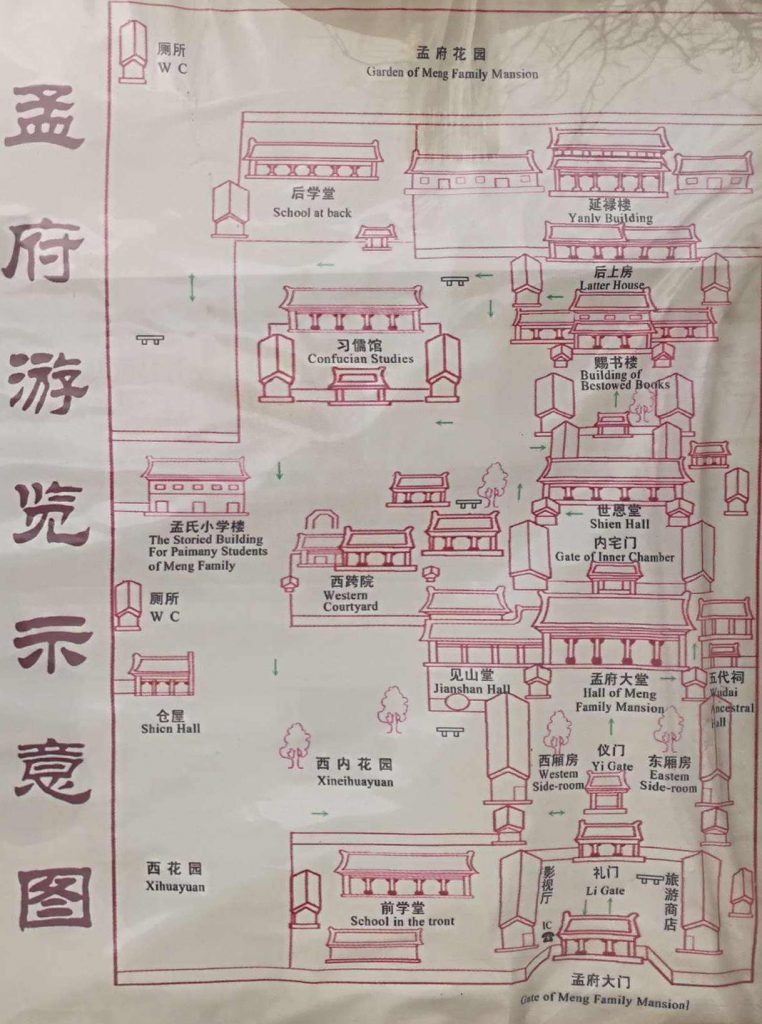 孟府游览示意图
厕所
W C
孟府花园
Garden of Meng Family Mansion
后学堂
School at back
延禄楼
Yanlv Building
后上房
Latter House
习儒馆
Confucian Studies
赐书楼
Building of
Bestowed Books
世恩堂
Shien Hall
孟氏小学楼
The Storied Building
For Paimany Students
of Meng Family
内宅门
Gate of Inner Chamber
西跨院
Western
Courtyard
厕所
W C
仓屋
Shien Hall
见山堂
Jianshan Hall
孟府大堂
Hall of Meng
Family Mansion
五代祠
Wudai
Ancestral
Hall
西内花园
Xineihuayuan
西厢房
Western
Side-room
仪门
Yi Gate
东厢房
Eastern
Side-room
西花园
Xihuayuan
前学堂
School in the tront
影视厅
礼门
Li Gate
旅游商店
IC
孟府大门
Gate of Meng Family Mansion